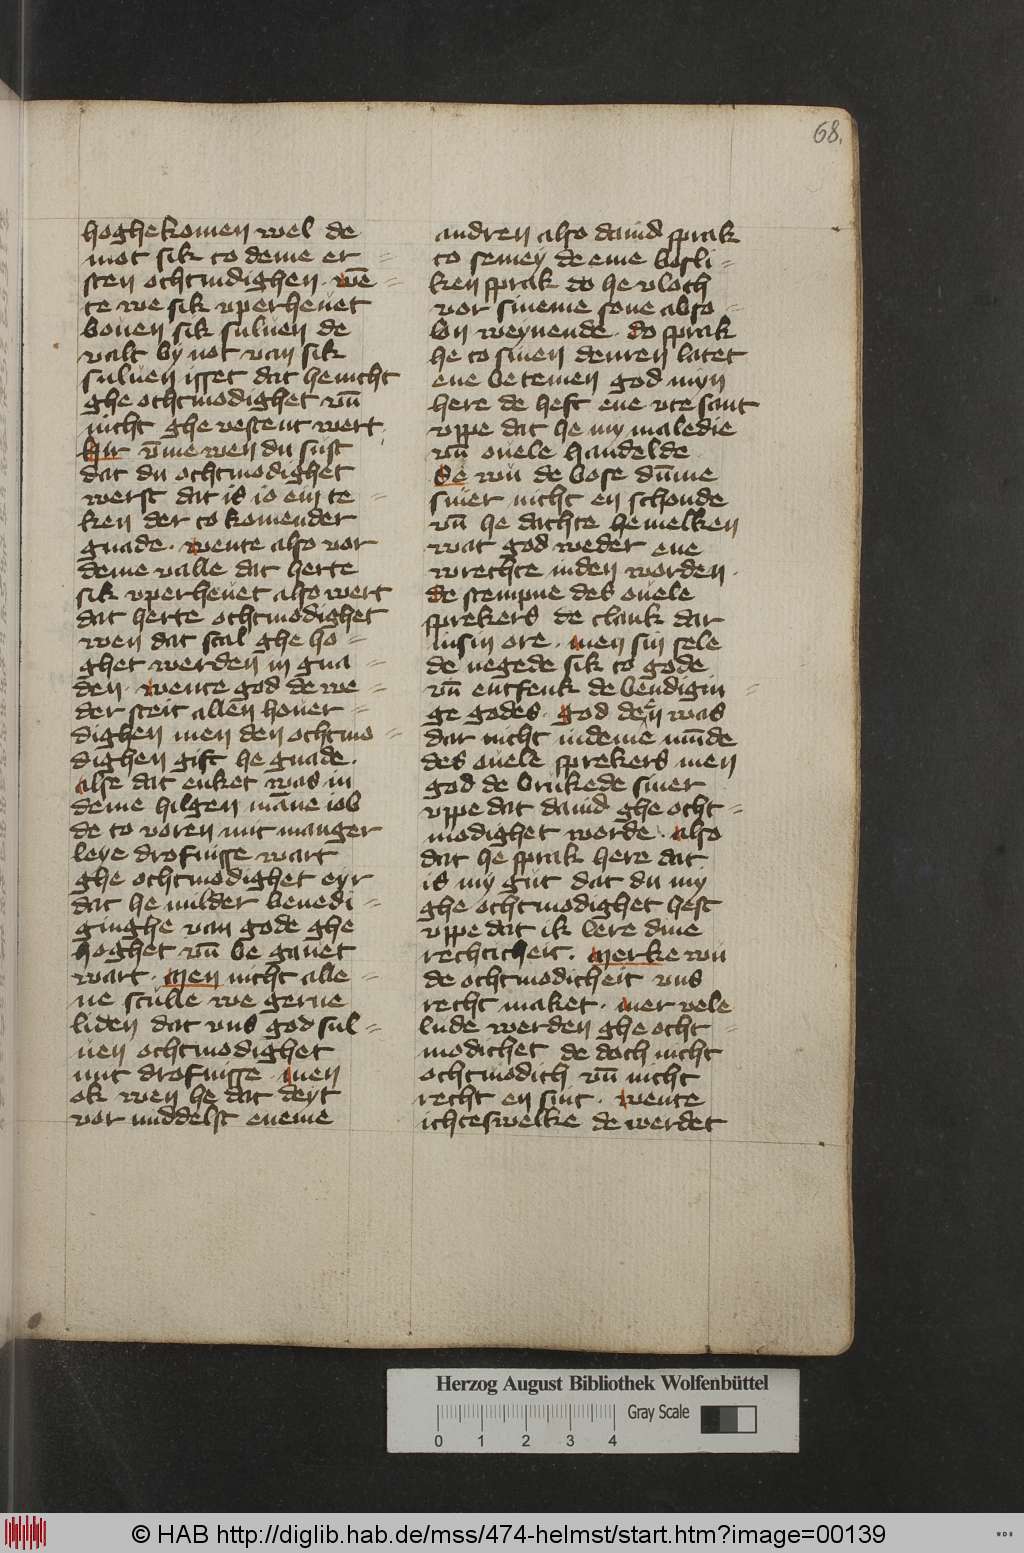 68.
hoghekomen wel de
mot sik to deme er=
sten ochtmdighen. wē=
te we sik vperheuet
bouen sik suluen de
valt by not van sik
suluen isset dat he nicht
ghe ochtmodighet vn̄
nicht ghe vestent wert.
hir v̄me wen du sust
dat du ochtmodighet
werst dat is io ein te=
ken der to komender
gnade. wente also vor
deme valle dat herte
sik vperheuet also wert
dat herte ochtmodighet
wen dat scal ghe ho=
ghet werden in gna=
den. wente god de we=
der steit allen houer=
dighen men den ochtmo=
dighen gift he gnade.
alse dat enket was in
deme hilgen māne iob
de to voren mit manger
leye drofnisse wart
ghe ochtmodighet eyr
dat he milder benedi=
ginghe van gode ghe
hoghet vn̄ be gauet
wart. Men nicht alle=
ne sculle we gerne
liden dat vns god sul=
uen ochtmodighet
mit drofnisse. men
ok wen he dat deyt
vor middelst eneme
andren also dauid sprak
to semey de eme bosli=
ken sprak do he vloch
vor sineme sone abso=
lon weynende. do sprak
he to sinen denren latet
ene betemen god myn
here de heft ene vte sant
vppe dat he my maledie
vn̄ ouele handelde.
Se wu de bose dūme
siner nicht en schonde
vn̄ he dachte hemelken
wat god weder ene
wrechte in den worden.
de stempne des ouele
sprekers de clank dar
in sin ore. men sin sele
de negede sik to gode
vn̄ entfenk de bendigin=
ge godes. god den was
dar nicht in deme mūde
des ouele sprekers men
god de brukede siner
vppe dat dauid ghe ocht=
modighet worde. also
dat he sprak here dat
is my gut dat du my
ghe ochtmodighet hest
vppe dat ik lere dine
rechticheit. Merke wu
de ochtmodicheit vns
recht maket. wer vele
lude werden ghe ocht=
modichet de doch nicht
ochtmodich vn̄ nicht
recht en sint. wente
ichteswelke de werdet
Herzog August Bibliothek Wolfenbüttel
Gray Scale
0 1 2 3 4
© HAB http://diglib.hab.de/mss/474-helmst/start.htm?image=00139